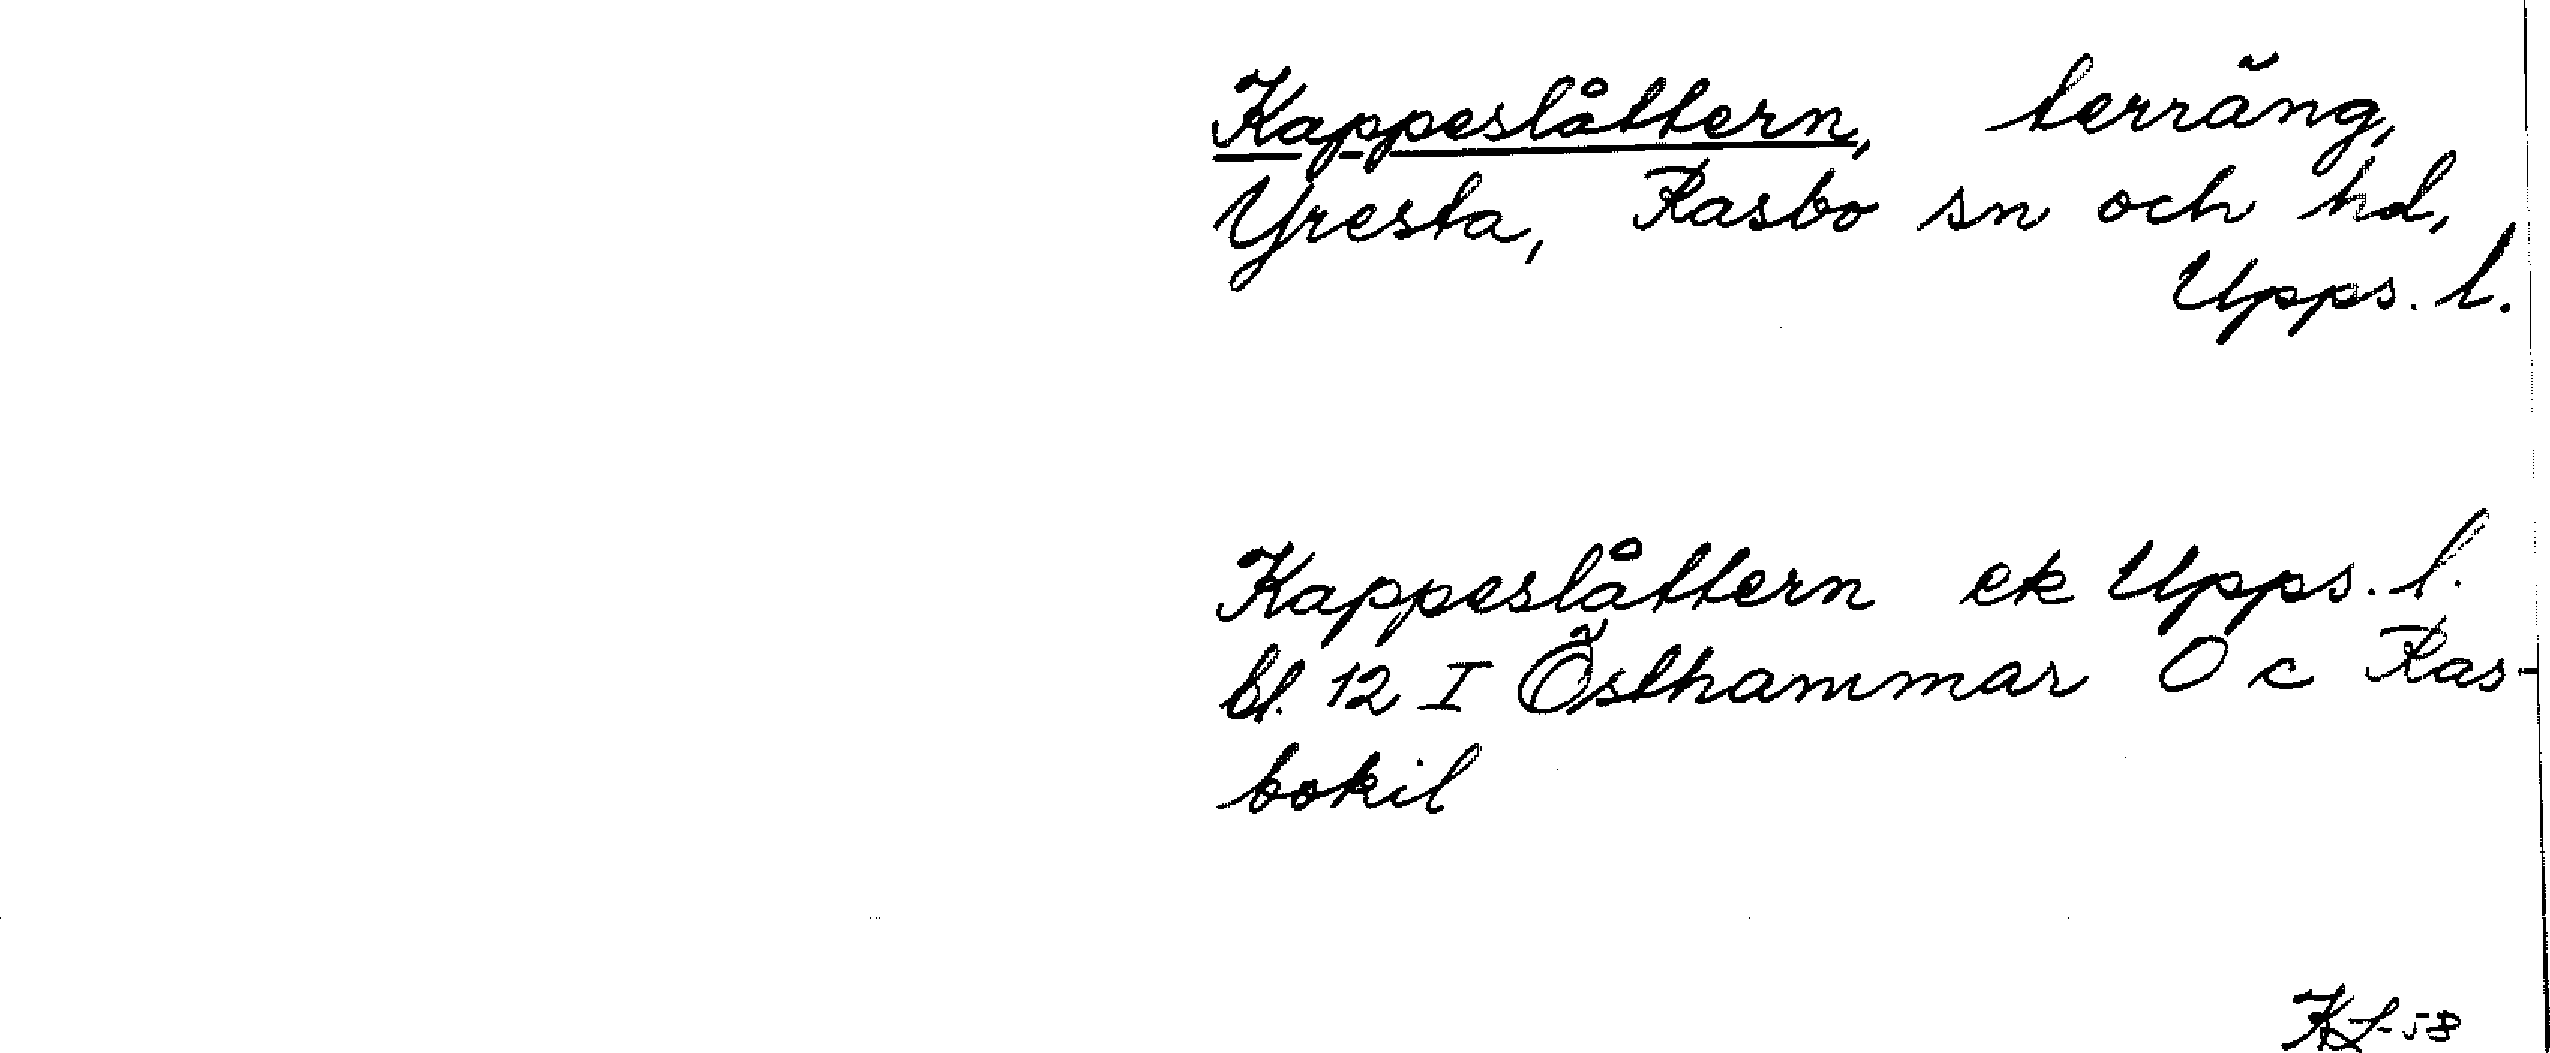 Kappeslåttern, terräng,
Yresta, Rasbo sn och hd,
Upps. l.
Kappeslåttern ek Upps. l.
bl. 12 I Östhammar O c Ras-
bokil
KL-58